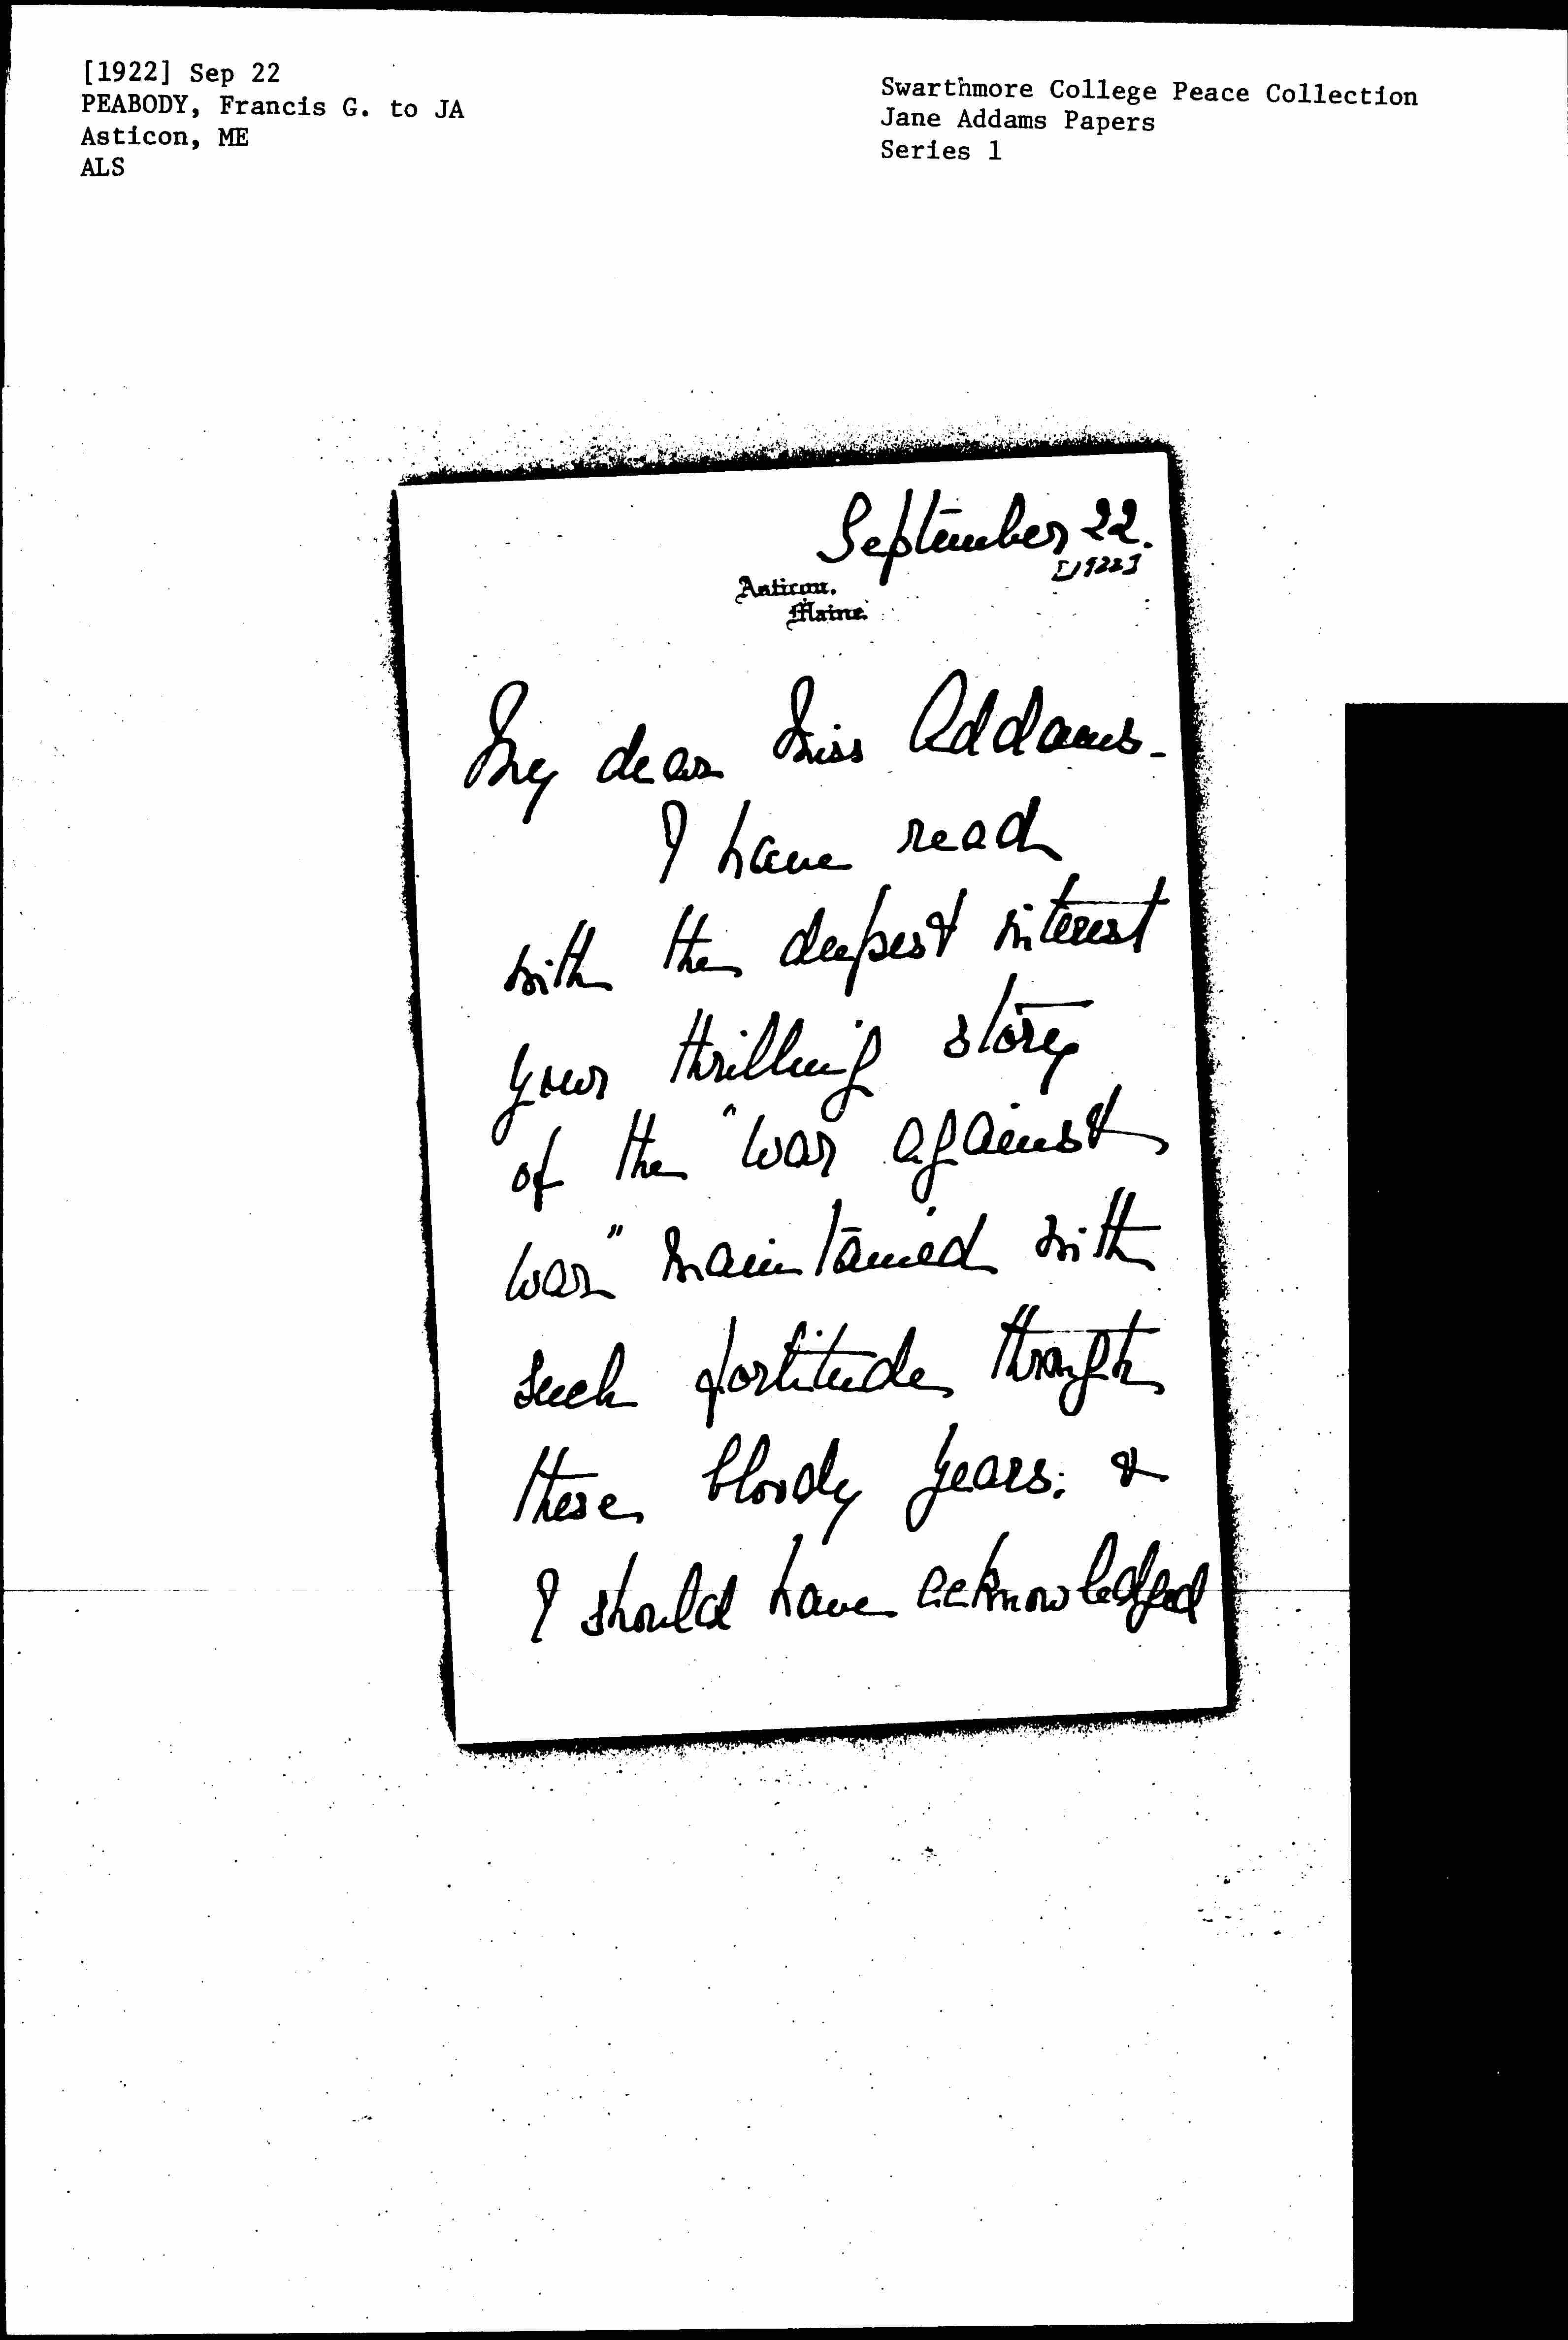 [1922] Sep 22
PEABODY, Francis G. to JA
Asticon, ME
ALS
Swarthmore College Peace Collection
Jane Addams Papers
Series 1
September 22.
[1922]
Asticou,
Maine.
My dear Miss Addams-
I have read
with the deepest interest
your thrilling story
of the "war against
war" maintained with
such fortitude through
these bloody years: &
I should have acknowledged